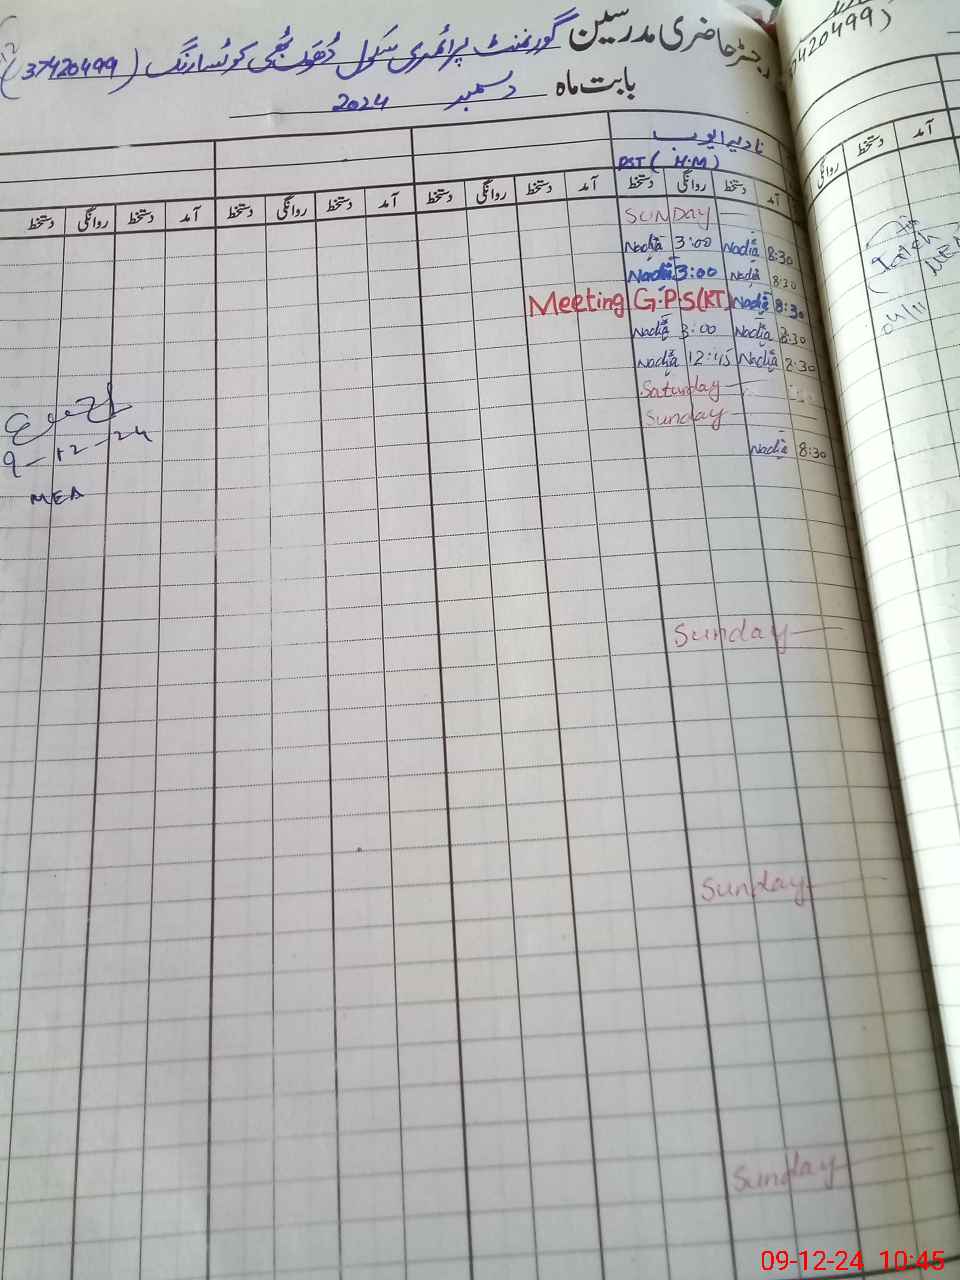 رجسٹر حاضری مدرسین گورنمنٹ پرائمری سکول (37420499)
بابت ماہ دسمبر 2024
نادیہ ایوب
PST (H.M)
آمد دستخط روانگی دستخط آمد دستخط روانگی دستخط آمد دستخط روانگی دستخط آمد دستخط روانگی دستخط
SUNDAY
8:30 Nadia 3:00 Nadia
8:30 Nadia 3:00 Nadia
Meeting G.P.S(KT) Nadia 8:30
8:30 Nadia 3:00 Nadia
8:30 Nadia 12:45 Nadia
Saturday
Sunday
8:30 Nadia
9-12-24
MEA
Sunday
Sunday
Sunday
37420499)
آمد دستخط روانگی
MEA
04/11
09-12-24 10:45